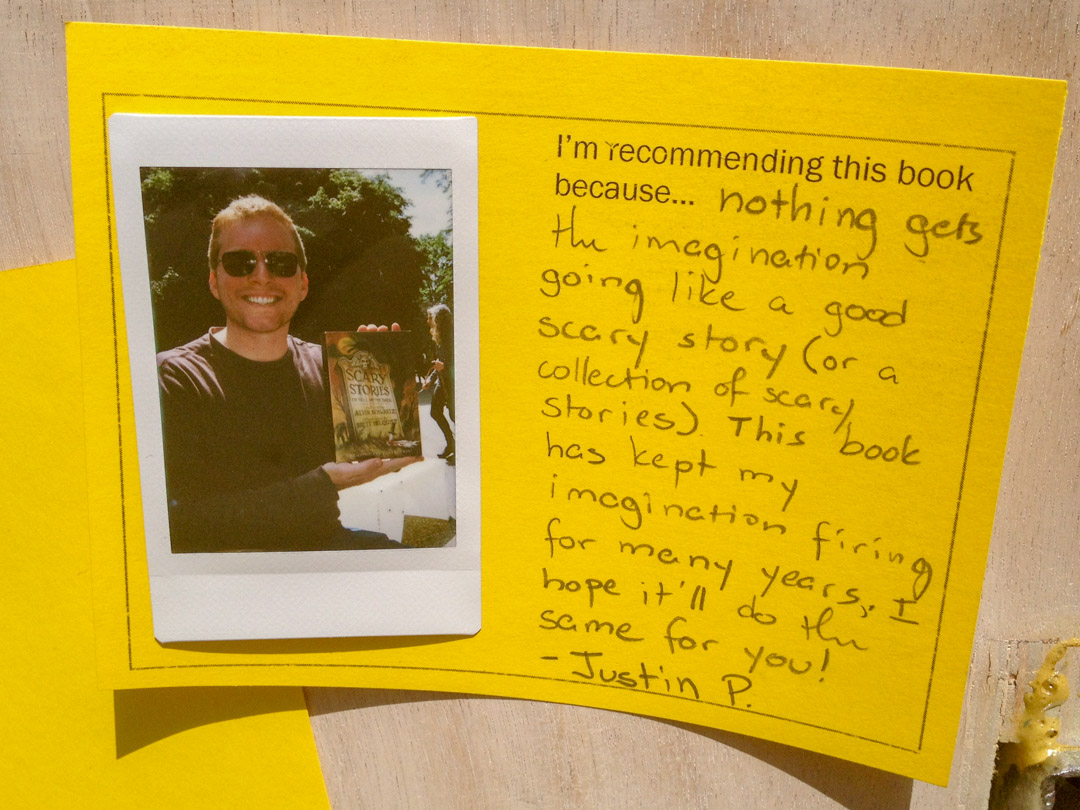 SCARY
STORIES
ALVIN SCHWARTZ
I'm recommending this book
because... nothing gets
the imagination
going like a good
scary story (or a
collection of scary
stories). This book
has kept my
imagination firing
for many years, I
hope it'll do the
same for you!
- Justin P.